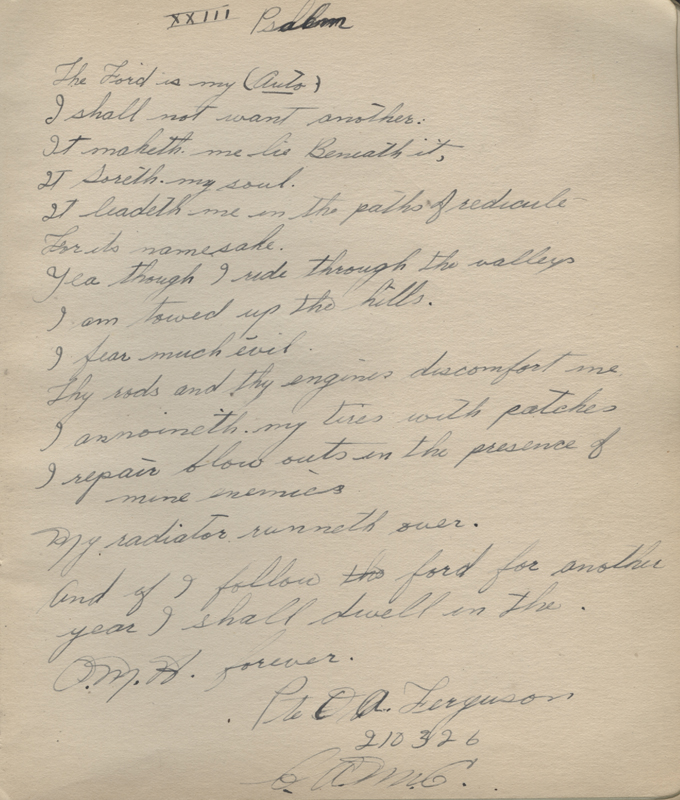 XXIII Psalm
The Ford is my (Auto)
I shall not want another:
It maketh me lie Beneath it,
It Soreth my soul.
It leadeth me in the paths of redicule
For its namesake.
Yea though I ride through the valleys
I am towed up the hills.
I fear much evil.
Thy rods and thy engines discomfort me,
I annoineth my tires with patches
I repair blow outs in the presence of
mine enemies
My radiator runneth over.
And if I follow the ford for another
year I shall dwell in the.
O.M.H. forever.
Pte C A. Ferguson
210326
C.A.M.C.